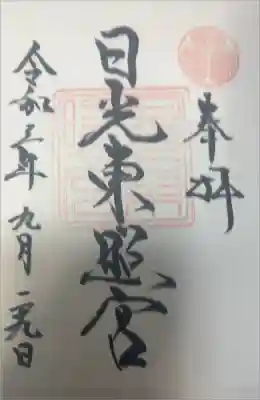 奉拝
日光東照宮
令和三年九月 日